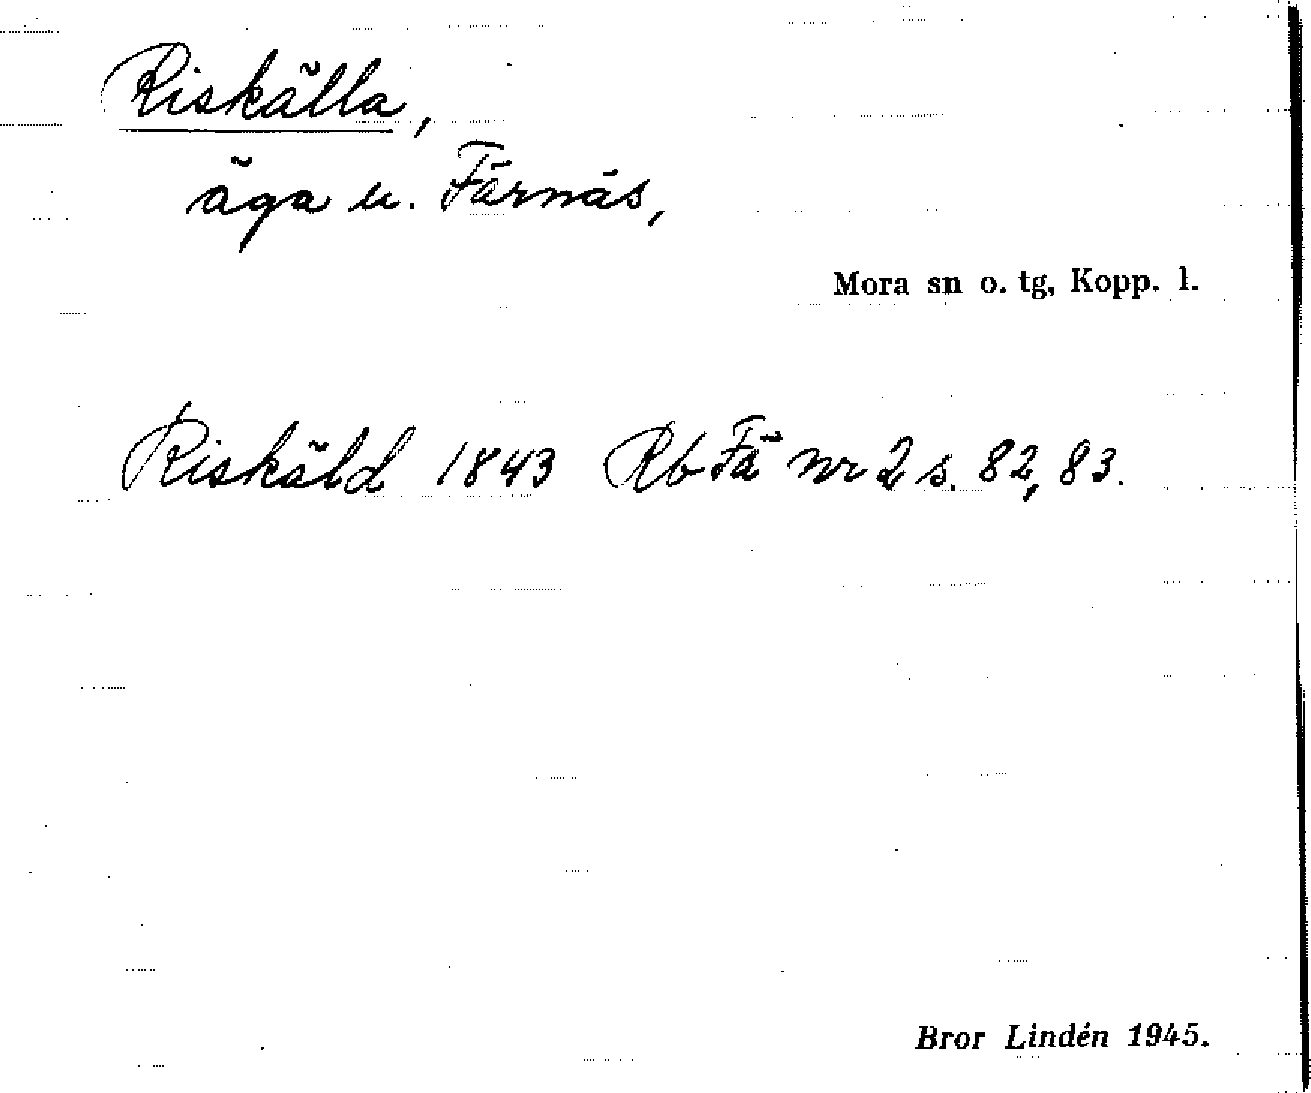 Riskälla,
äga u. Färnäs,
Mora sn o. tg, Kopp. l.
Riskäld 1843 Rb Fä nr 2 s. 82, 83.
Bror Lindén 1945.